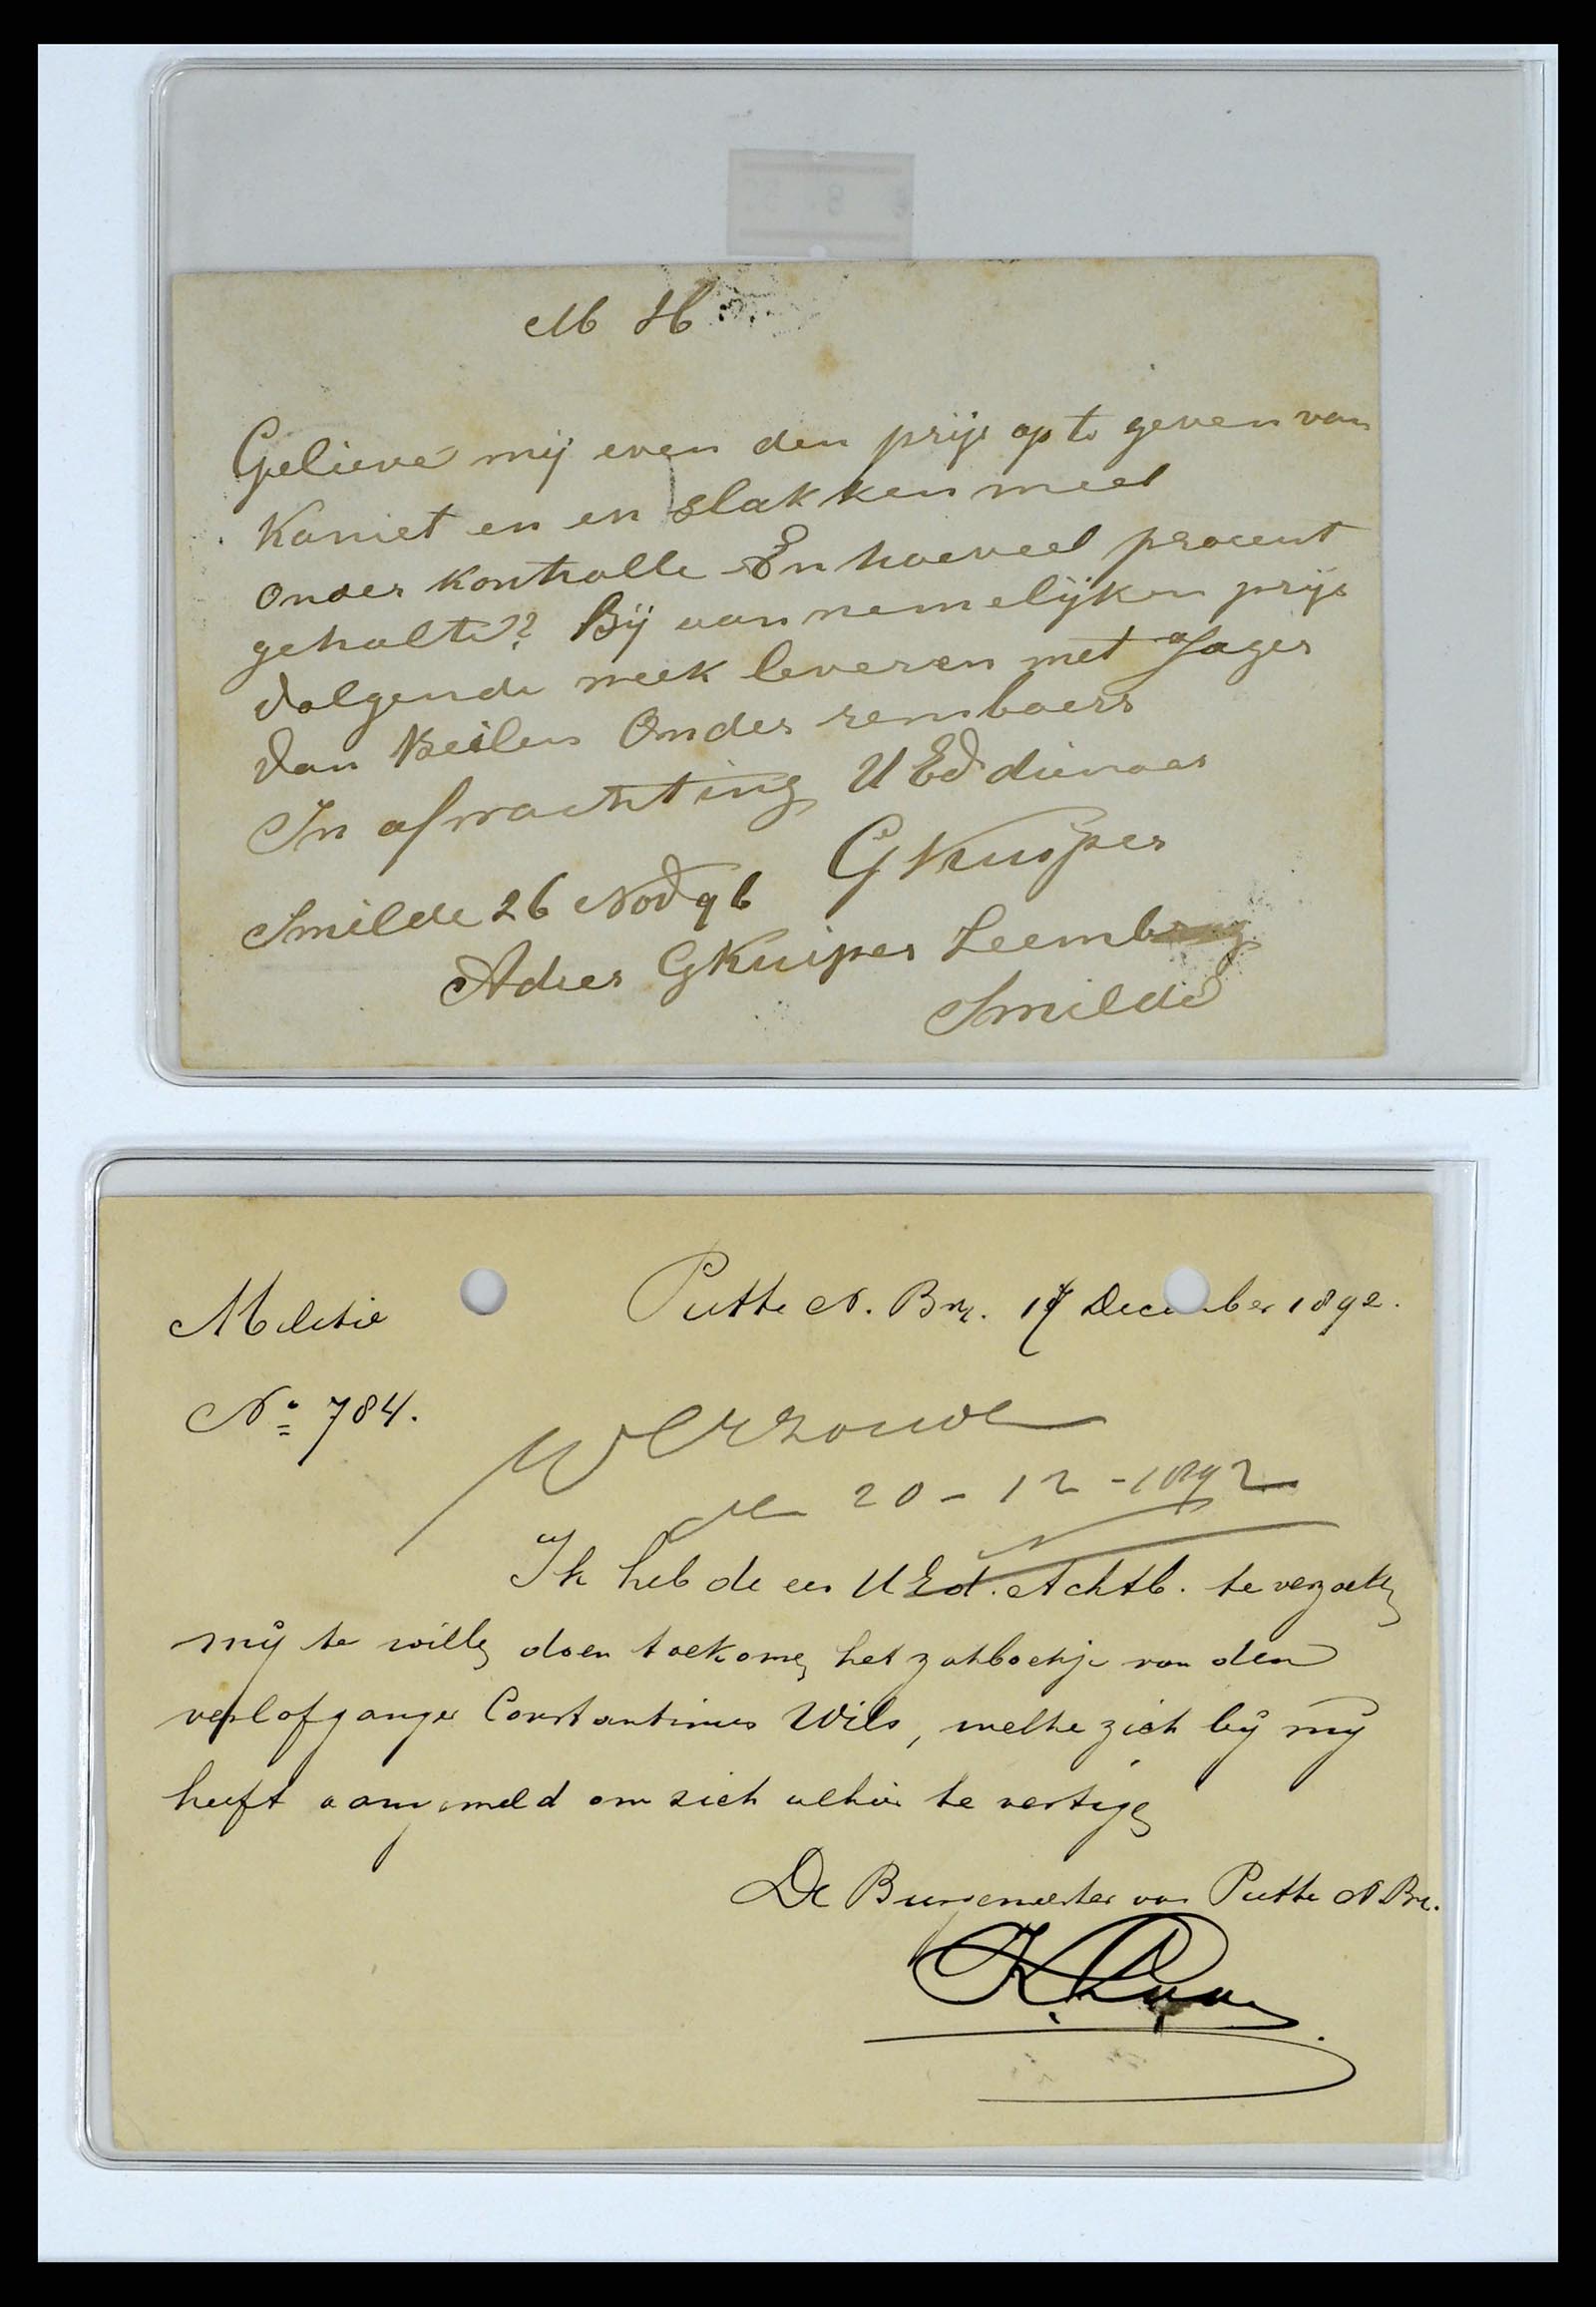 M H
Gelieve mij even den prijs op te geven van
Kaniet en en slakkenmeel
Onder kontrolle En hoeveel procent
gehalte? Bij aannemelijken prijs
Volgende week leveren met Jager
Van Beilen Onder remboers
In afwachting U Ed dienaar
G Kuiper
Smilde 26 Nov 96
Adres G Kuiper Leembrug
Smilde
Militie
Putte N. Br. 17 December 1892.
No 784.
20-12-1892
Ik heb de eer U Ed. Achtb. te verzoeken
mij te willen doen toekomen het zakboekje van den
verlofganger Constantinus Wils, welke zich bij mij
heeft aangemeld om zich alhier te vestigen
De Burgemeester van Putte N Br.